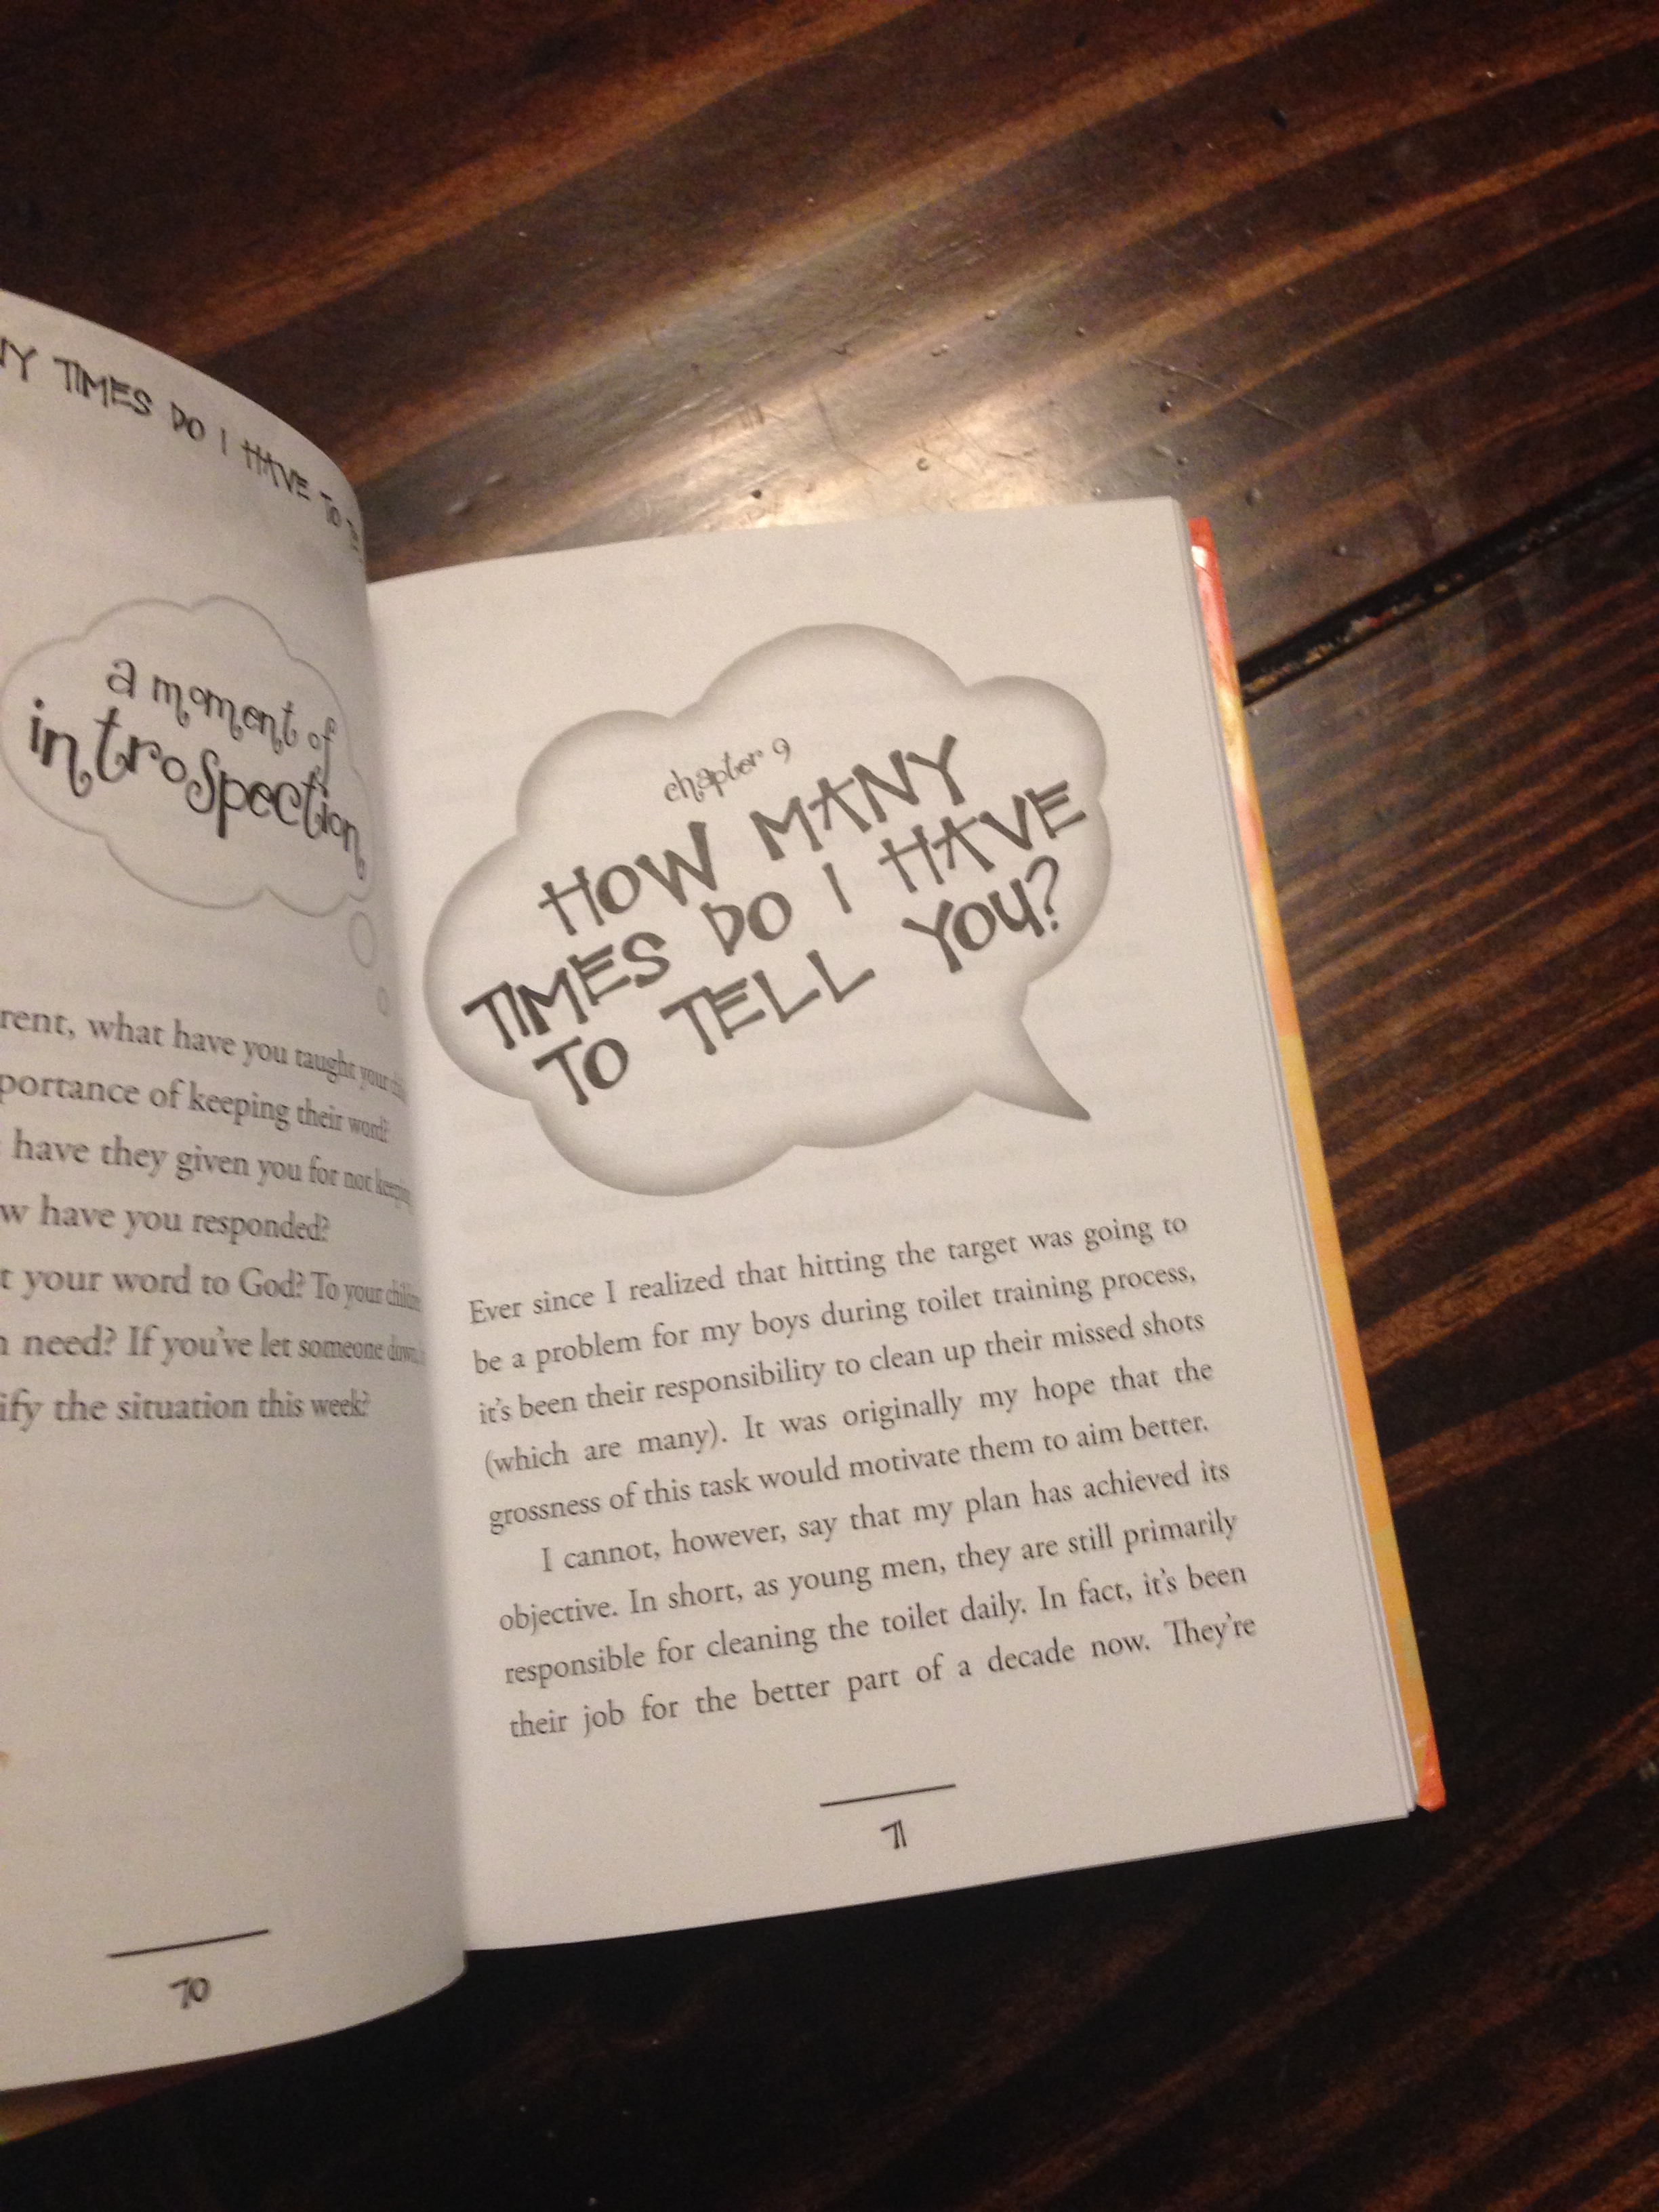 TIMES DO I HAVE TO
a moment of
introspection
what have you taught your
of keeping their word?
have they given you for not keeping
have you responded?
your word to God? To your
need? If you've let someone down,
the situation this week?
70
chapter 9
HOW MANY
TIMES DO I HAVE
TO TELL YOU?
Ever since I realized that hitting the target was going to
be a problem for my boys during toilet training process,
it's been their responsibility to clean up their missed shots
(which are many). It was originally my hope that the
grossness of this task would motivate them to aim better.
I cannot, however, say that my plan has achieved its
objective. In short, as young men, they are still primarily
responsible for cleaning the toilet daily. In fact, it's been
their job for the better part of a decade now. They're
71